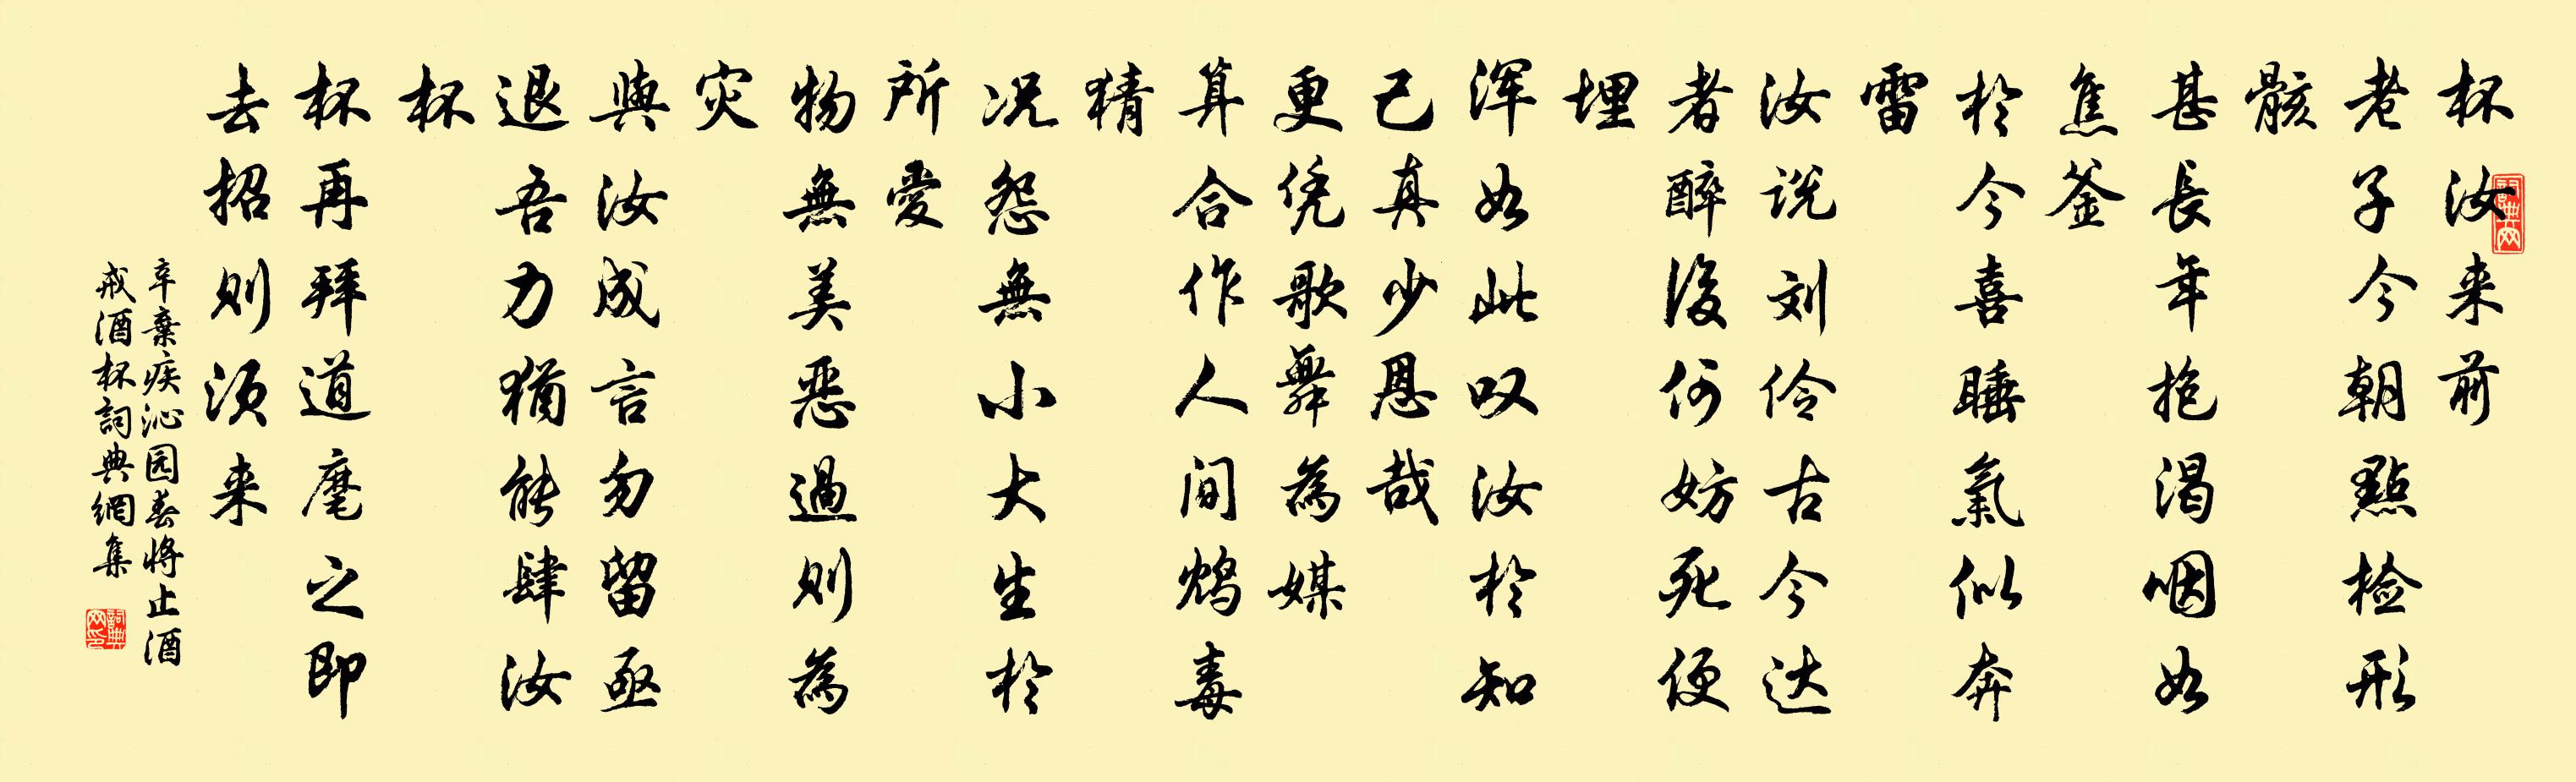 杯汝来前
老子今朝點检形
骸
甚長年抱渴咽如
焦釜
於今喜睡氣似奔
雷
汝说刘伶古今达
者醉後何妨死便
埋
浑如此叹汝於知
己真少恩哉
更凭歌舞為媒
算合作人间鸩毒
猜
况怨無小大生於
所愛
物無美恶過则為
灾
與汝成言勿留亟
退吾力猶能肆汝
杯
杯再拜道麾之即
去招则须来
辛棄疾沁园春将止酒
戒酒杯詞典網集
詞典网
詞典网印